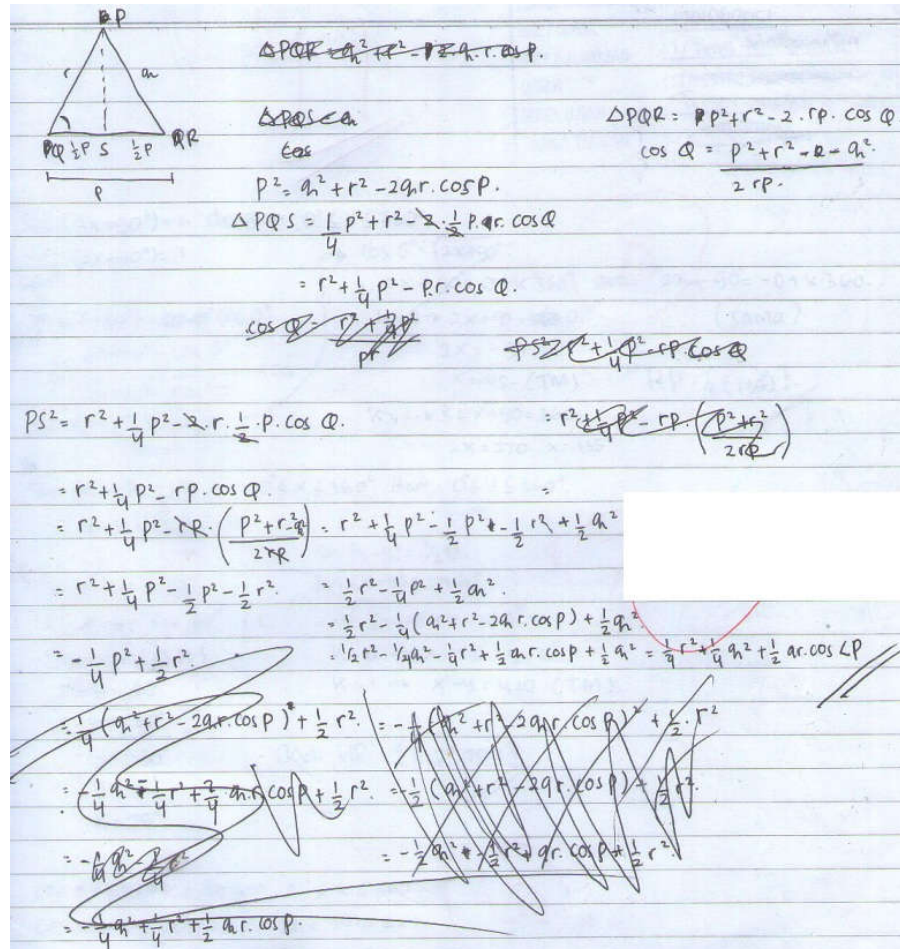 P
r
q
Q ½P S ½P R
P
ΔPQR = q² + r² - 2 q. r. cos P.
ΔPQS =
cos
ΔPQR = p² + r² - 2. rp. cos Q
cos Q = (p² + r² - q²) / 2 rp.
p² = q² + r² - 2qr. cos P.
ΔPQS = ¼ p² + r² - 2. ½ p. r. cos Q
= r² + ¼ p² - p.r. cos Q.
cos Q = (r² + ¼ p²) / pr
PS² = r² + ¼ p² - rp. cos Q
PS² = r² + ¼ p² - 2. r. ½ . p. cos Q.
= r² + ¼ p² - rp. ((p² + r²) / 2rp)
= r² + ¼ p² - rp. cos Q.
=
= r² + ¼ p² - rp. ((p² + r² - q²) / 2rp) = r² + ¼ p² - ½ p² - ½ r² + ½ q²
= r² + ¼ p² - ½ p² - ½ r².
= ½ r² - ¼ p² + ½ q².
= ½ r² - ¼ (q² + r² - 2qr. cos P) + ½ q²
= - ¼ p² + ½ r².
= ½ r² - ¼ q² - ¼ r² + ½ qr. cos P + ½ q² = ¼ r² + ¼ q² + ½ qr. cos ∠P
= ¼ (q² + r² - 2qr. cos P) + ½ r².
= - (q² + r² - 2qr. cos P)² + ½ . r²
= - ¼ q² - ¼ r² + 2/4 q. r. cos P + ½ r².
= - ½ (q² + r² - 2qr. cos P) + ½ r².
= - ¼ q²
= - ½ q² - ½ r² + qr. cos P + ½ r²
= - ¼ q² + ¼ r² + ½ q r. cos P.